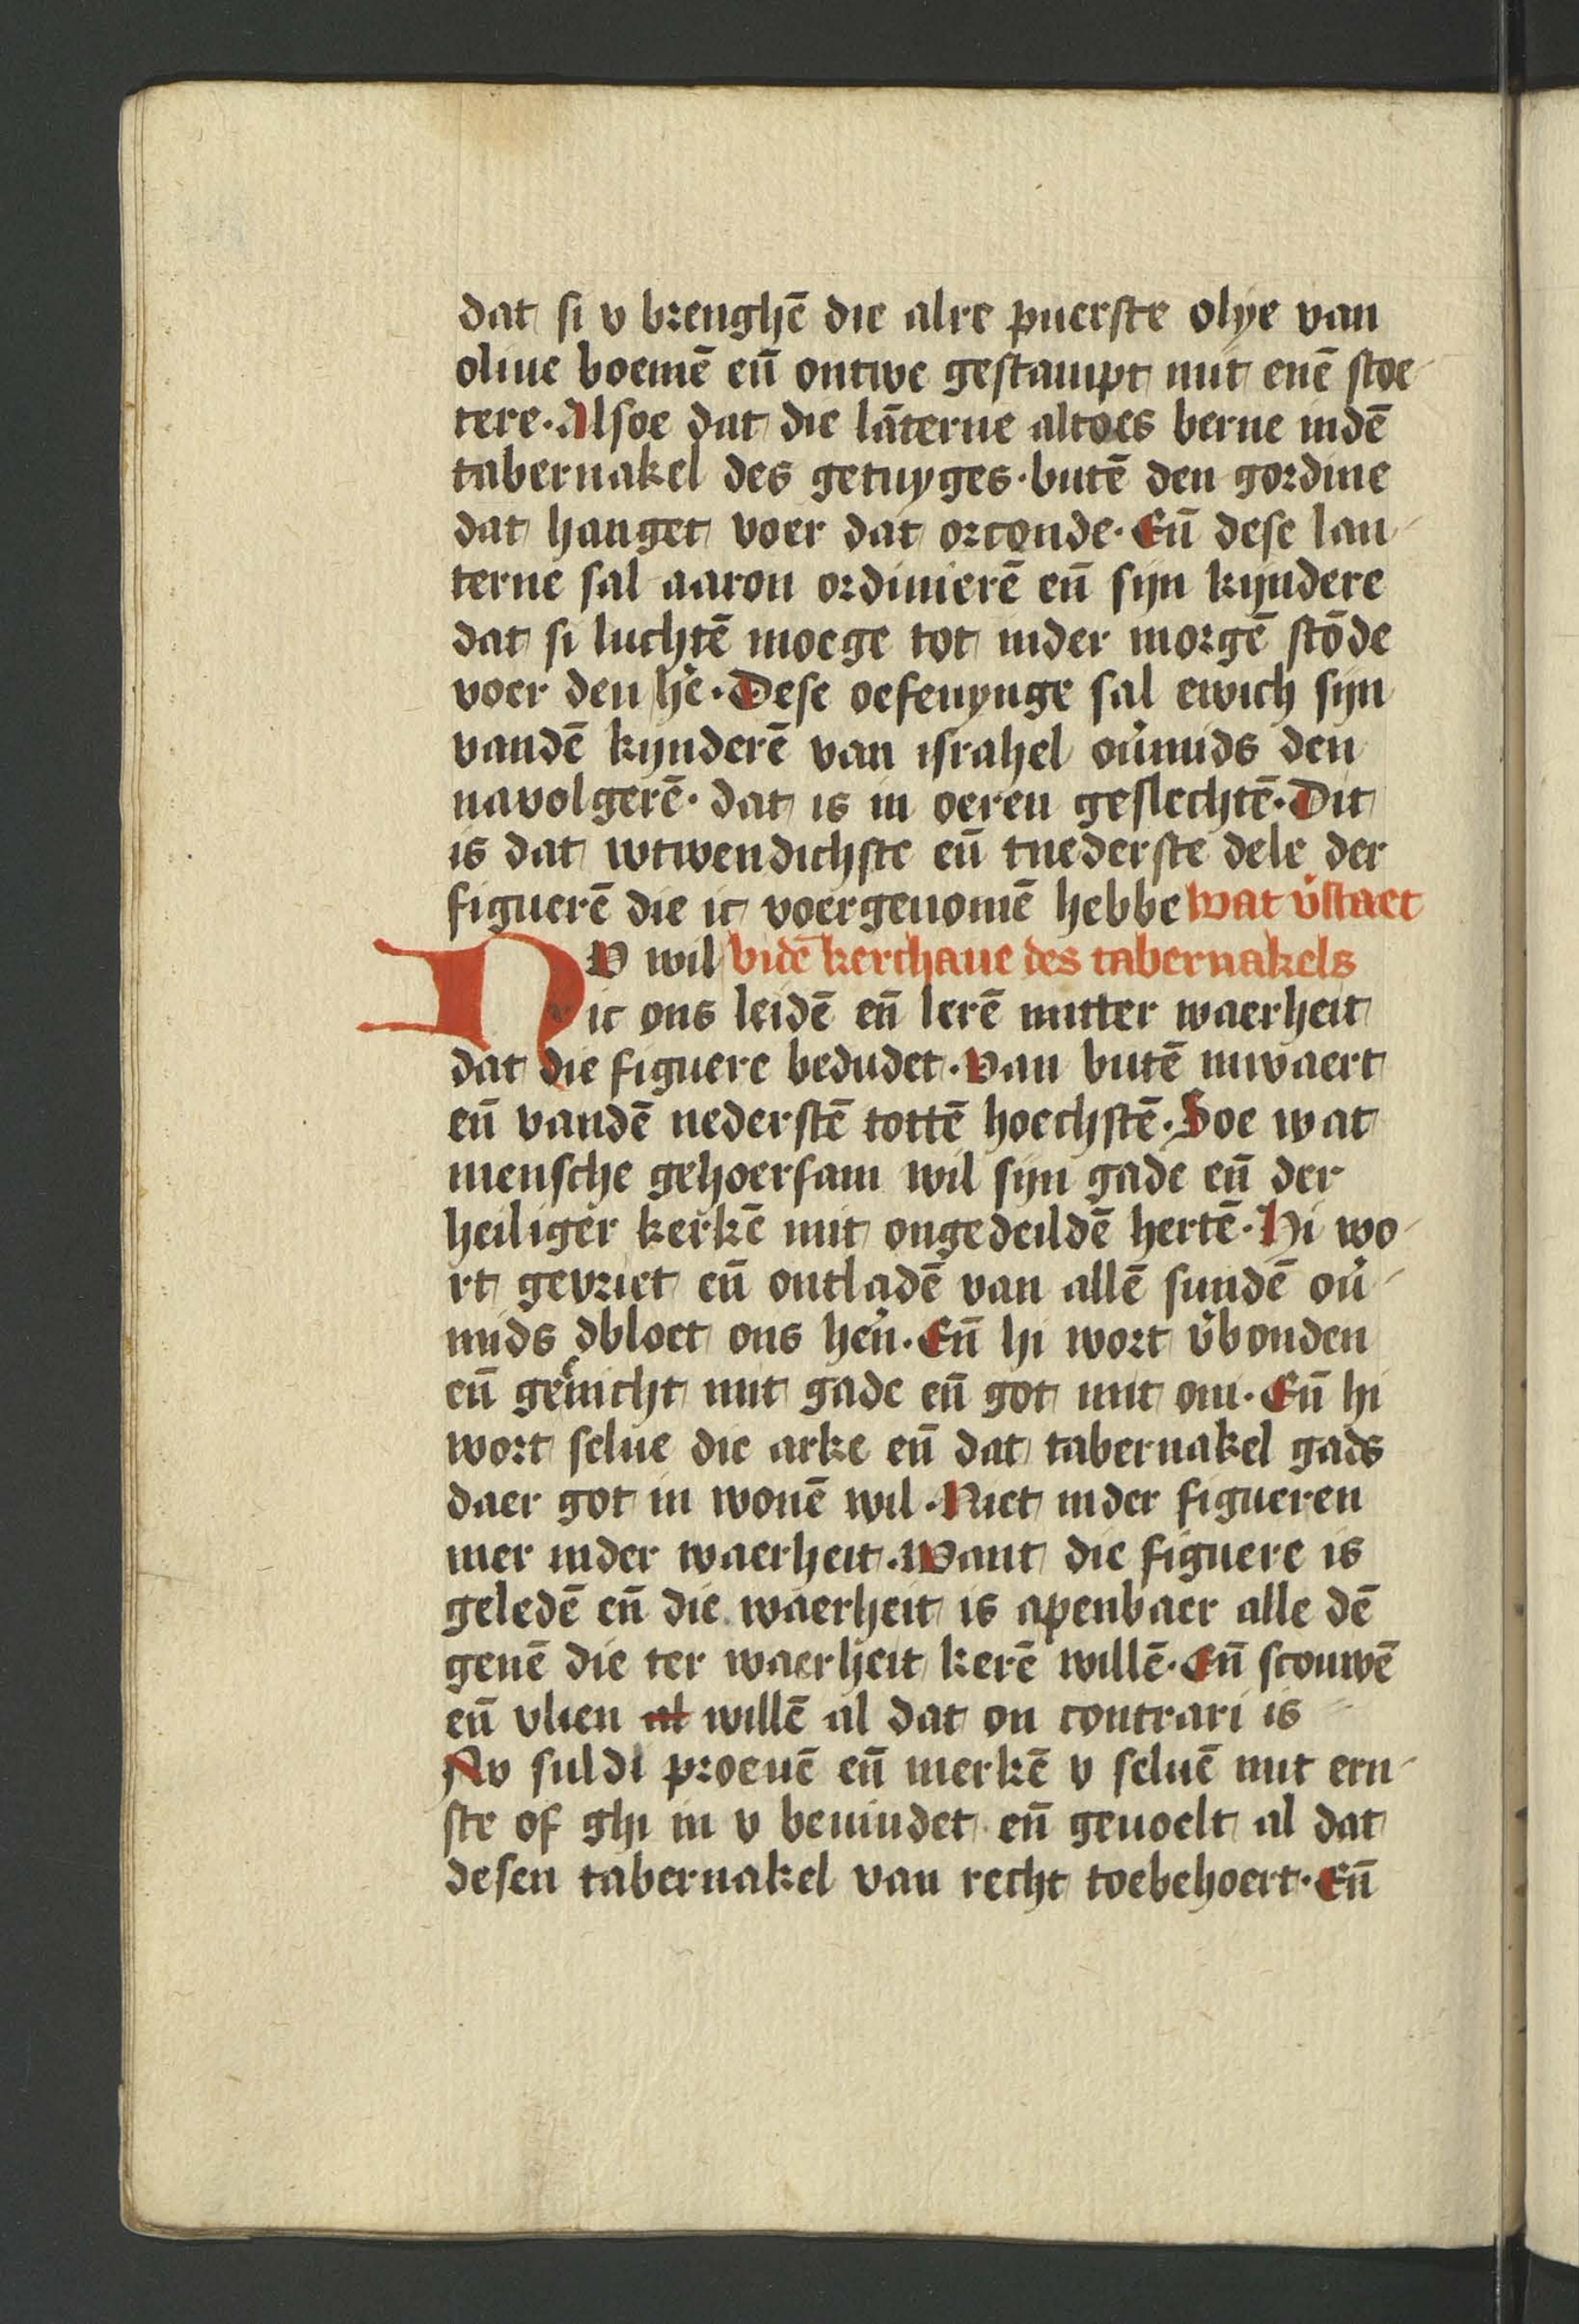 dat si v brenghē die alre puerste olye van
oliue boemē eū ontwe gestampt mit enē stoe-
tere. Alsoe dat die lāterne altoes berne indē
tabernakel des getuyges. butē den gordine
dat hanget voer dat orconde. Eū dese lan-
terne sal aaron ordinierē eū sijn kijndere
dat si luchtē moege tot inder morgē stōde
voer den hē. Dese oefenynge sal ewich sijn
vandē kijnderē van israhel ou͛mids den
navolgerē. dat is in oeren geslechtē. Dit
is dat wtwendichste eū tnederste dele der
figuerē die ic voergenomē hebbe wat v͛staet
NV wil bidē kerchaue des tabernakels
ic ons leidē eū lerē mitter waerheit
dat die figuere bedudet. Van butē inwaert
eū vandē nederstē tottē hoechstē. Soe wat
mensche gehoersam wil sijn gade eū der
heiliger kerkē mit ongedeildē hertē. Hi wo-
rt gevriet eū ontladē van allē sundē ou͛-
mids dbloet ons heu͛. Eū hi wort v͛bonden
eū geēnicht mit gade eū got mit om. Eū hi
wort selue die arke eū dat tabernakel gads
daer got in wonē wil. Niet inder figueren
mer inder waerheit. Want die figuere is
geledē eū die waerheit is apenbaer alle dē
genē die ter waerheit kerē willē. Eū scouwē
eū vlien al willē al dat on contrari is
Nv suldi proeuē eū merkē v seluē mit ern-
ste of ghi in v beuindet eū geuoelt al dat
desen tabernakel van recht toebehoert. Eū